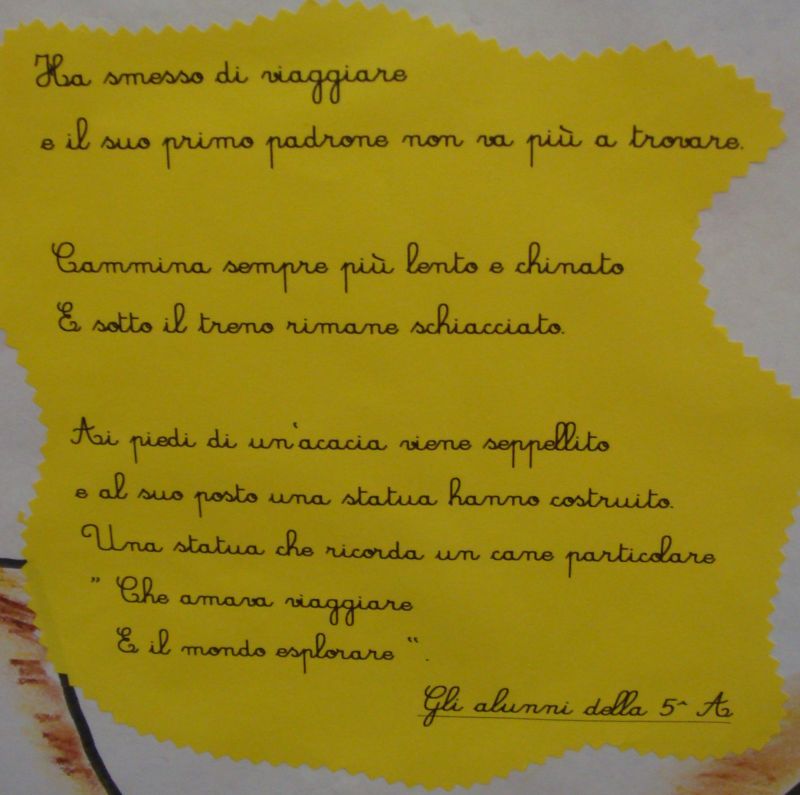 Ha smesso di viaggiare
e il suo primo padrone non va più a trovare.
Cammina sempre più lento e chinato
E sotto il treno rimane schiacciato.
Ai piedi di un'acacia viene seppellito
e al suo posto una statua hanno costruito.
Una statua che ricorda un cane particolare
" Che amava viaggiare
E il mondo esplorare ".
Gli alunni della 5^ A